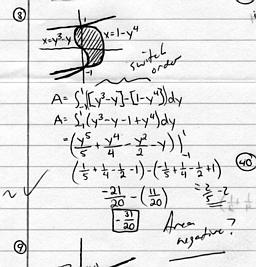 ⑧
x=y³-y x=1-y⁴
-1
switch
order
A= ∫₋₁¹[[y³-y]-[1-y⁴]]dy
A= ∫₋₁¹(y³-y-1+y⁴)dy
=(y⁵/5 + y⁴/4 - y²/2 - y)|₋₁¹
(1/5+1/4-1/2-1)-(-1/5+1/4-1/2+1)
40
-21/20 - (11/20) = 2/5 - 2
-31/20
Area
negative?
⑨